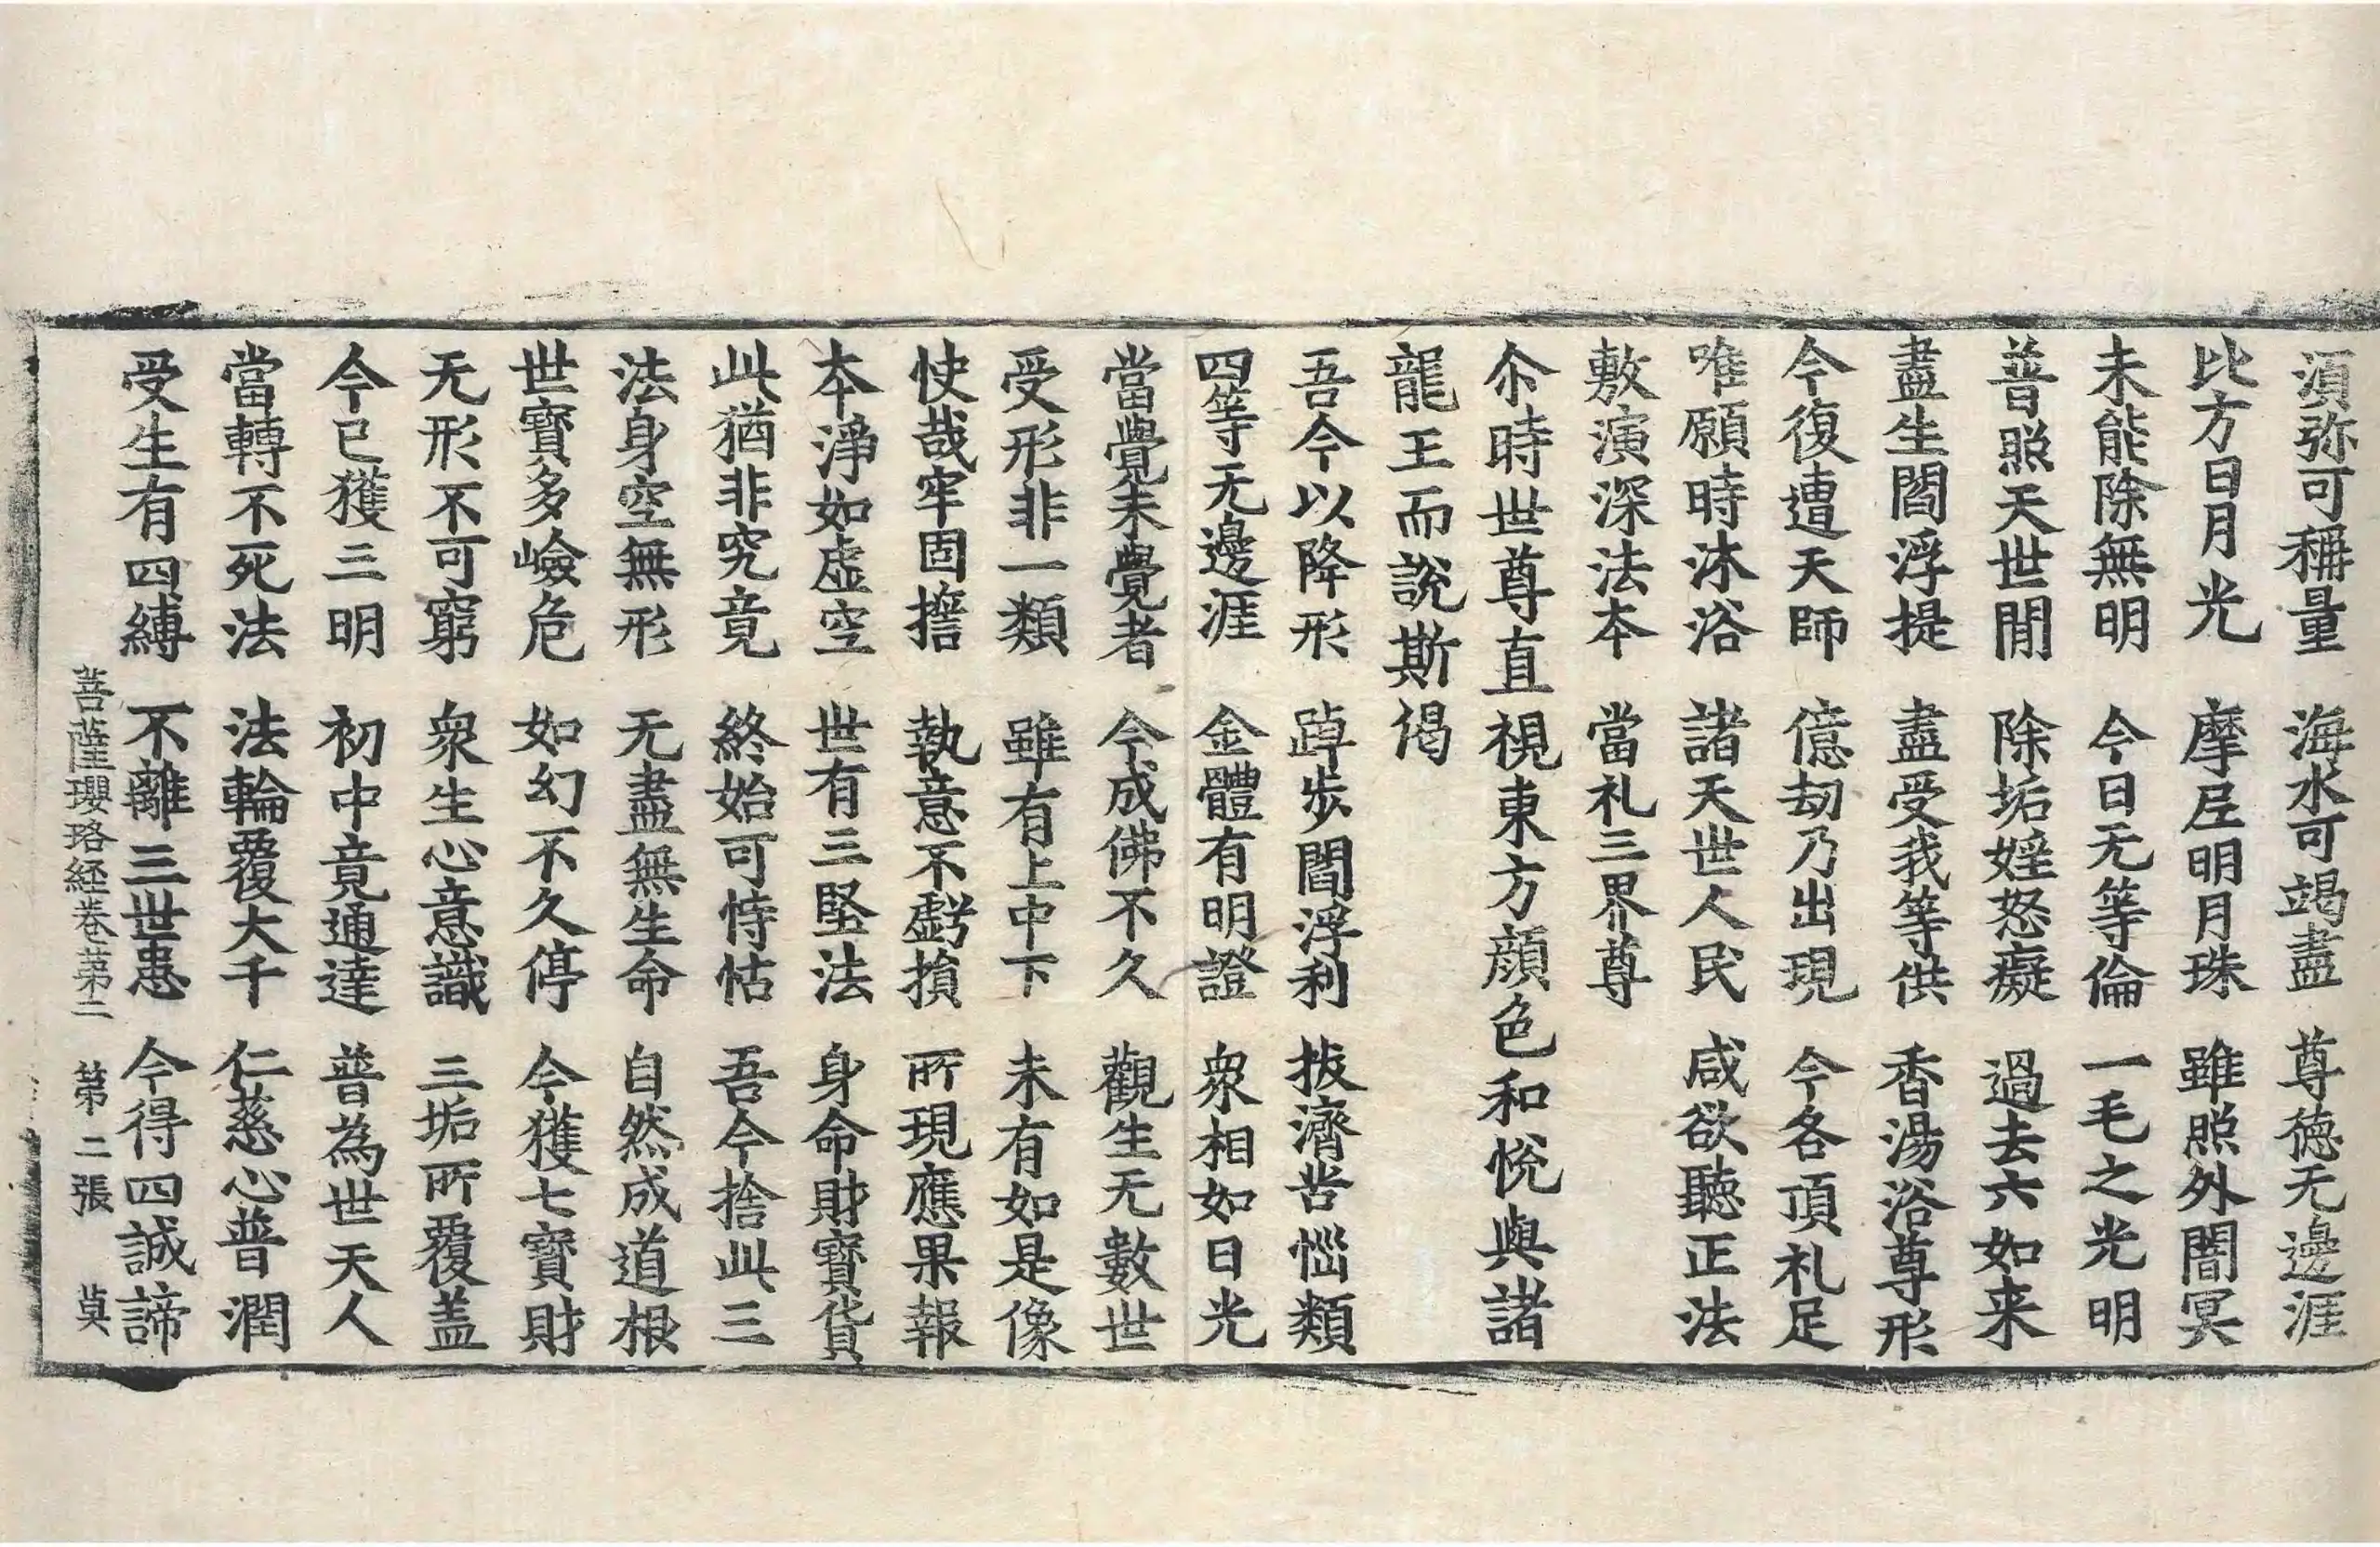 湏弥可稱量 海水可竭盡 尊德无邊涯
比方日月光 摩𡰱明月珠 雖照外闇冥
未能除無明 今日无等倫 一毛之光明
普照天世閒 除垢婬怒癡 過去六如来
盡生閻浮提 盡受我等供 香湯浴尊形
今復遭天師 億劫乃出現 今各頂礼足
唯願時沐浴 諸天世人民 咸欲聽正法
敷演深法本 當礼三界尊
尒時世尊直視東方顔色和悅與諸
龍王而說斯偈
吾今以降形 踔步閻浮利 拔濟苦惱類
四等无邊涯 金體有明證 衆相如日光
當覺未覺者 今成佛不久 觀生无數世
受形非一類 雖有上中下 未有如是像
快哉牢固擔 執意不虧損 所現應果報
本淨如虛空 世有三堅法 身命財寶貨
此猶非究竟 終始可恃怙 吾今捨此三
法身空無形 无盡無生命 自然成道根
世寶多嶮危 如幻不久停 今獲七寶財
无形不可窮 衆生心意識 三垢所覆盖
今已獲三明 初中竟通達 普為世天人
當轉不死法 法輪覆大千 仁慈心普潤
受生有四縛 不離三世患 今得四誠諦
菩薩瓔珞経卷第二 第二張 莫